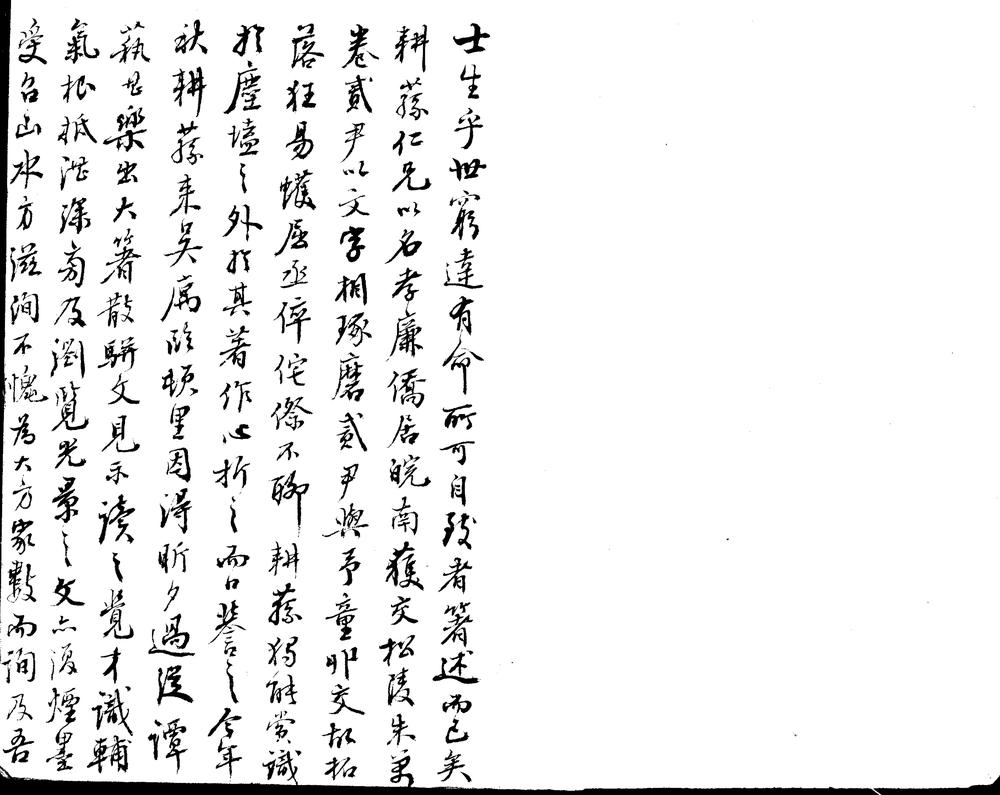 士生乎世窮達有命所可自致者箸述而已矣
耕蓀仁兄以名孝廉僑居皖南獲交松陵朱萬
卷貳尹以文字相琢磨貳尹與予童丱交故拓
落狂易蠖屈丞倅侘傺不聊耕蓀獨能賞識
於塵壒之外於其著作心折之而口譽之今年
秋耕蓀来吴寓臨頓里因得昕夕過從譚
藝甚樂出大箸散駢文見示讀之覺才識輔
氣根柢湛深奇及瀏覽光景之文亦復煙墨
受名山水方滋洵不愧為大方家數而詢及吾